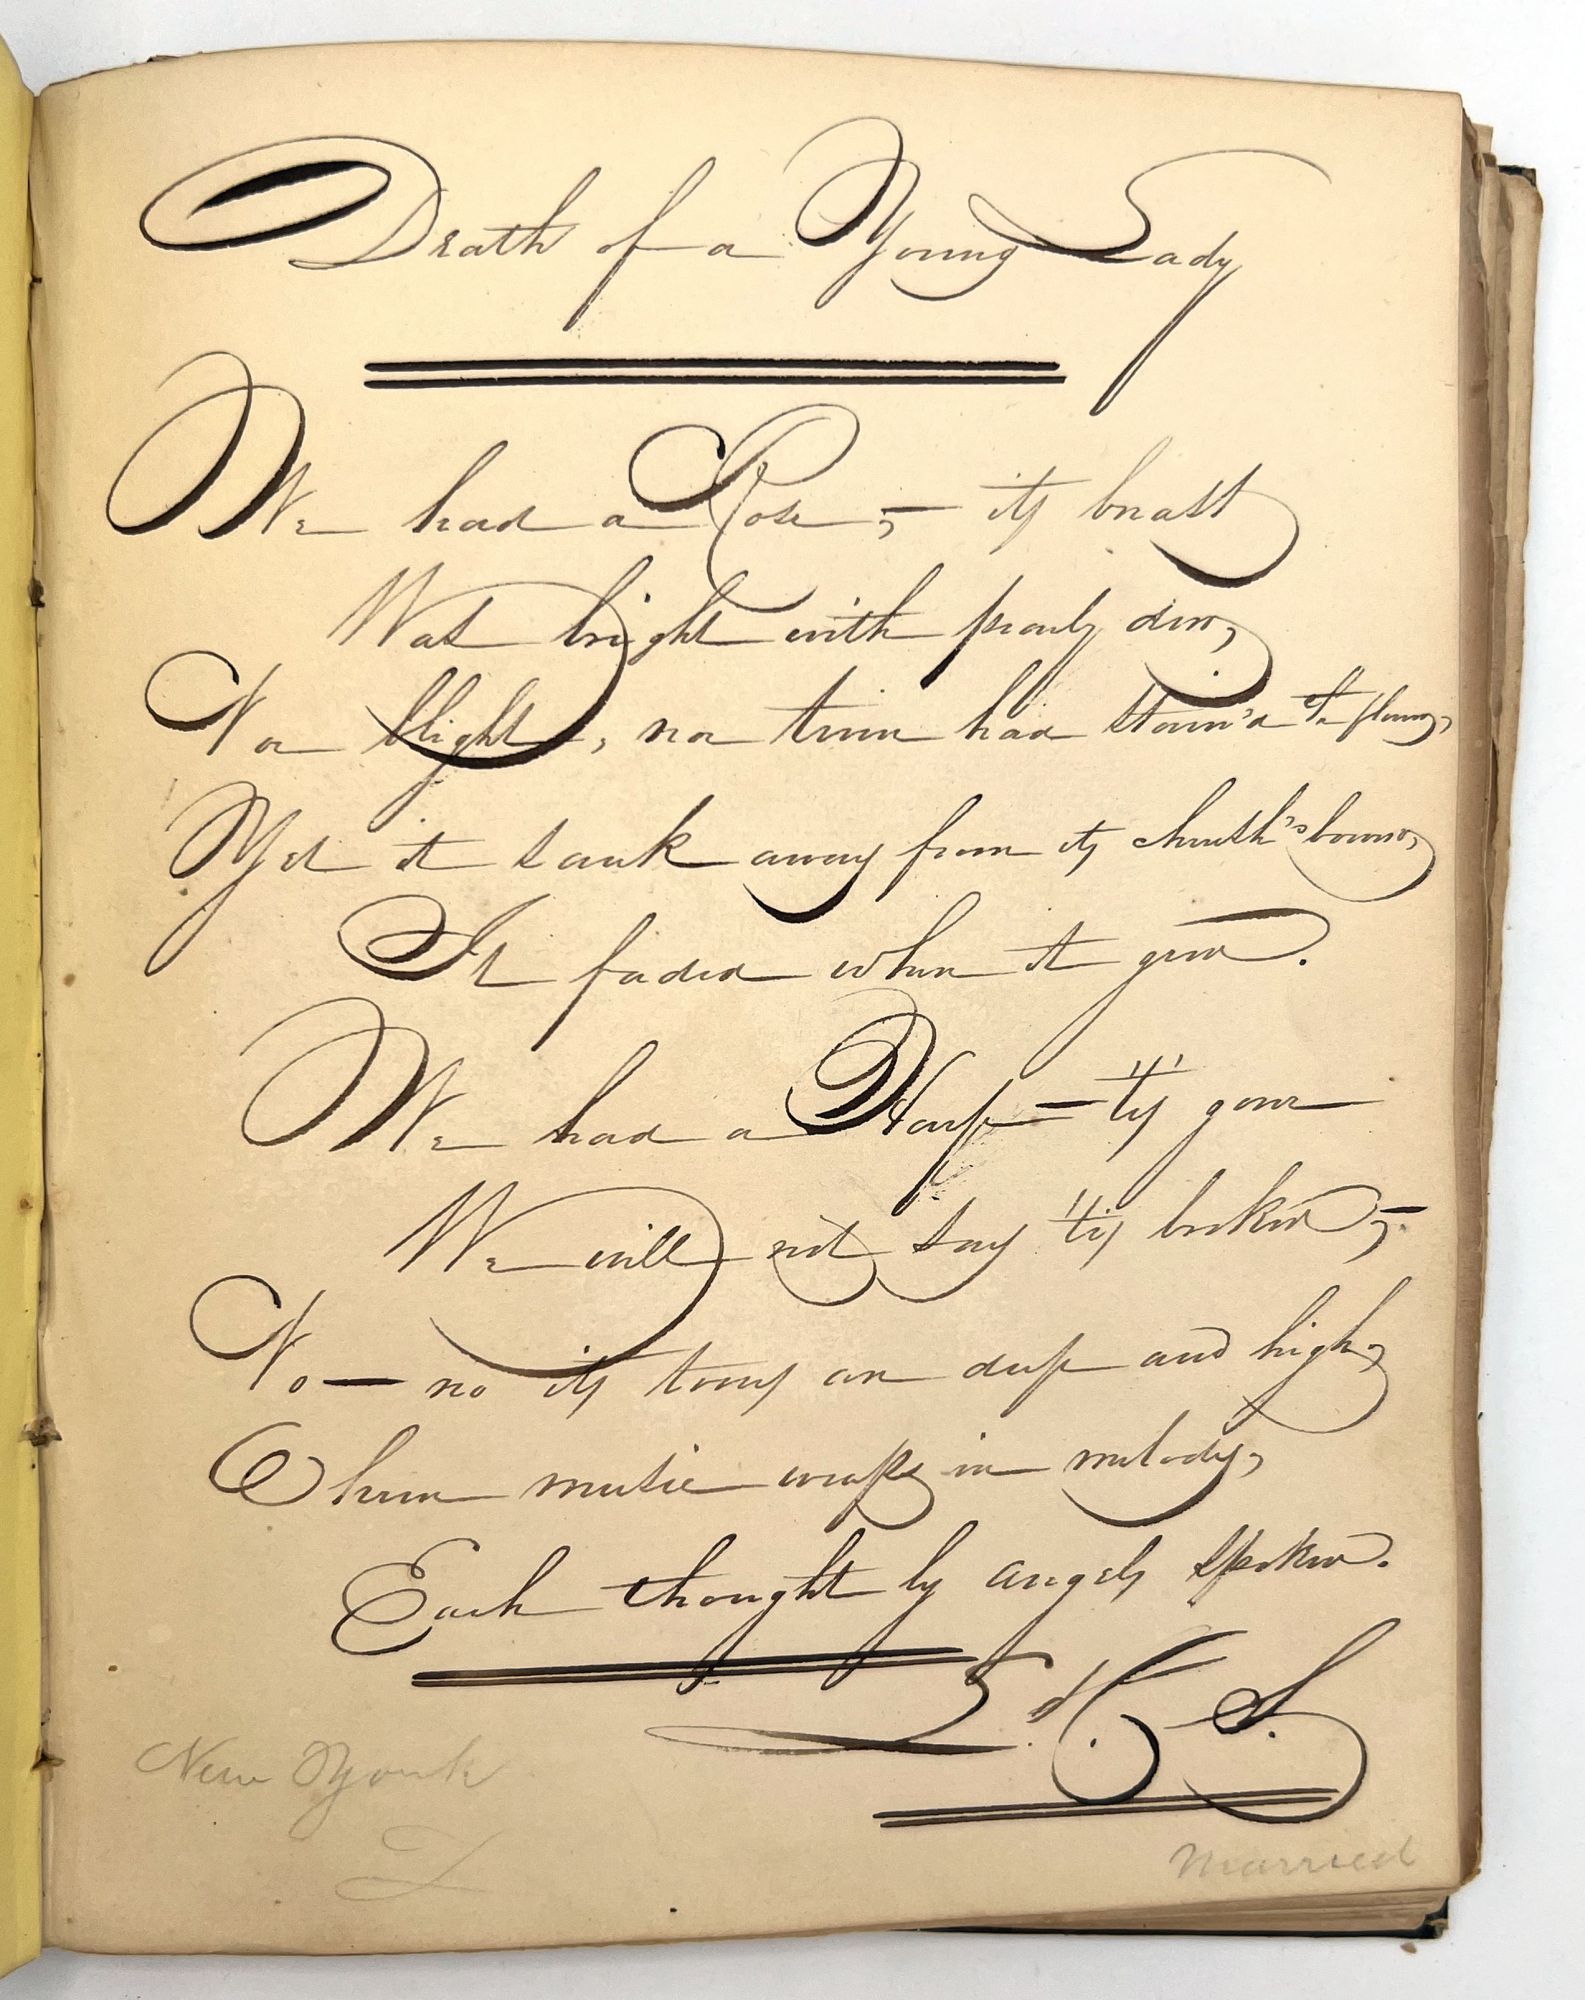 Death of a Young Lady
We had a Rose,— its breast
Was bright with pearly dew,
Nor blight, nor time had stain'd the flower,
Yet it sank away from its cherish'd bower,
It faded when it grew.
We had a Harp — 'tis gone
We will not say 'tis broken,—
No — no its tones are deep and high,
Where music wraps in melody,
Each thought by angels spoken.
H. S.
New York
Married